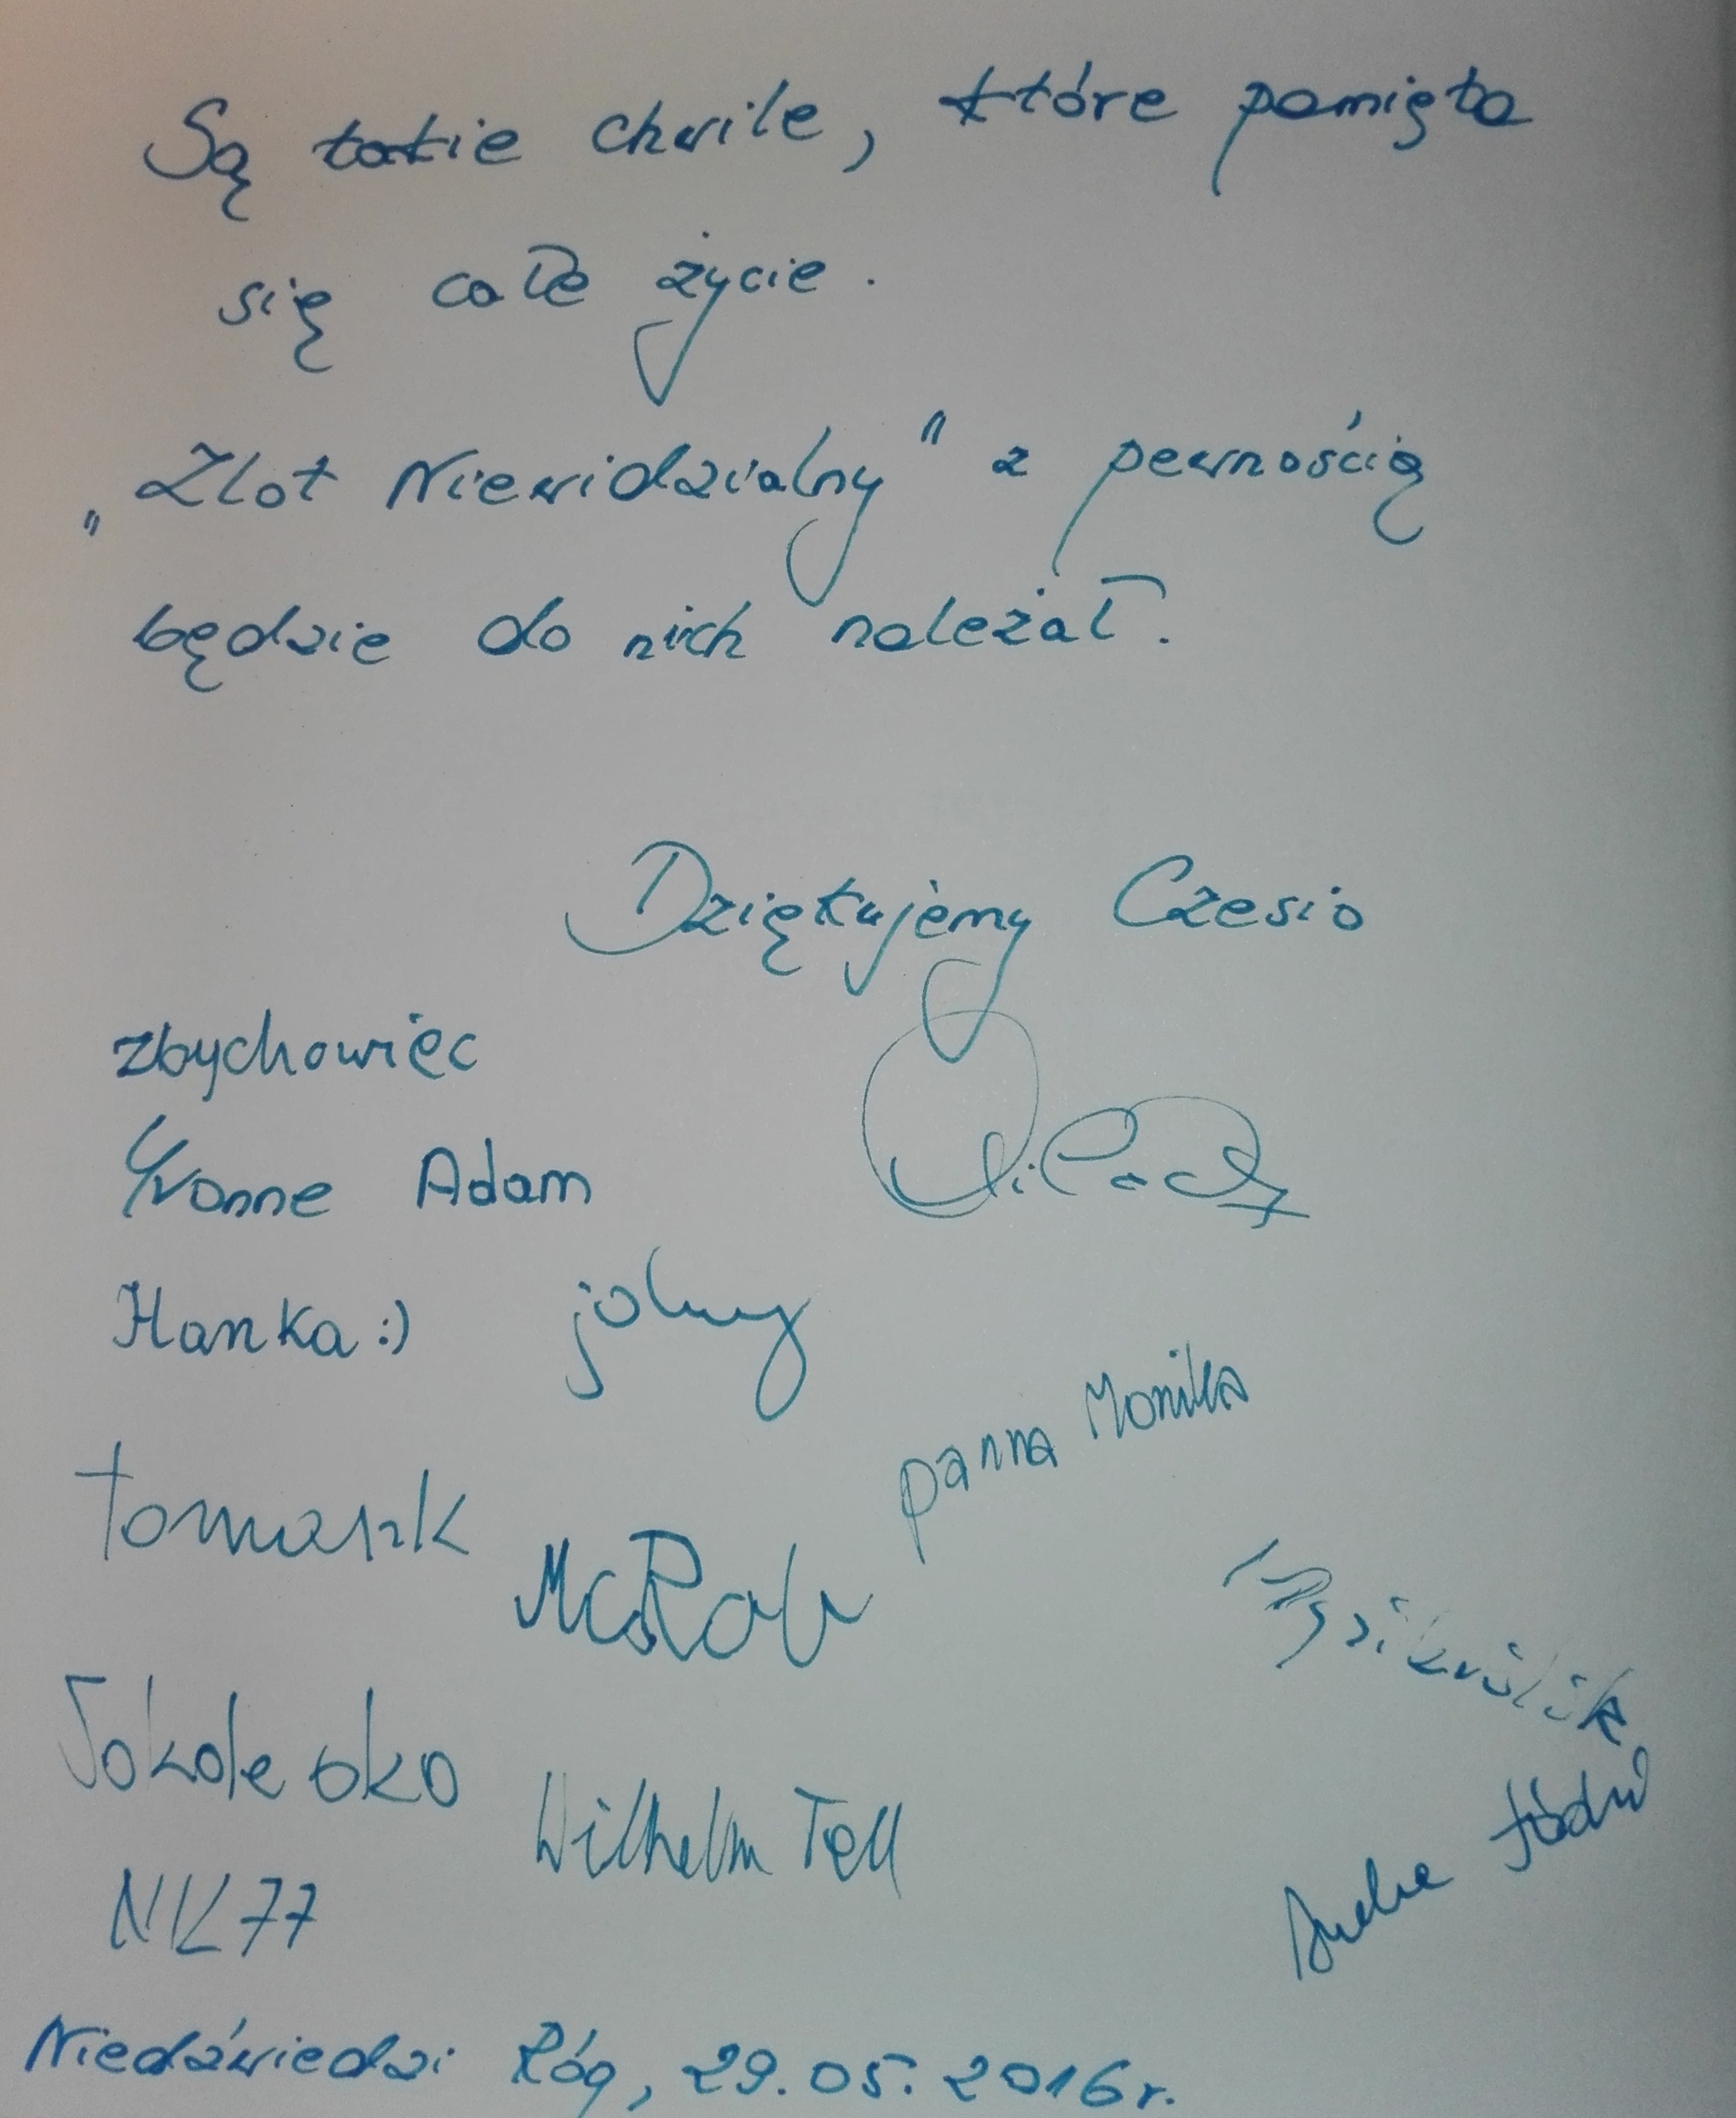 Są takie chwile, które pamięta
się całe życie.
„Zlot Niewidzialny" z pewnością
będzie do nich należał.
Dziękujemy Czesio
zbychowiec
Yvonne Adam
Hanka :)
johny
panna Monika
tomaszk
McRob
Sokole oko
Wilhelm Tell
NK77
Niedźwiedzi Róg, 29.05.2016r.